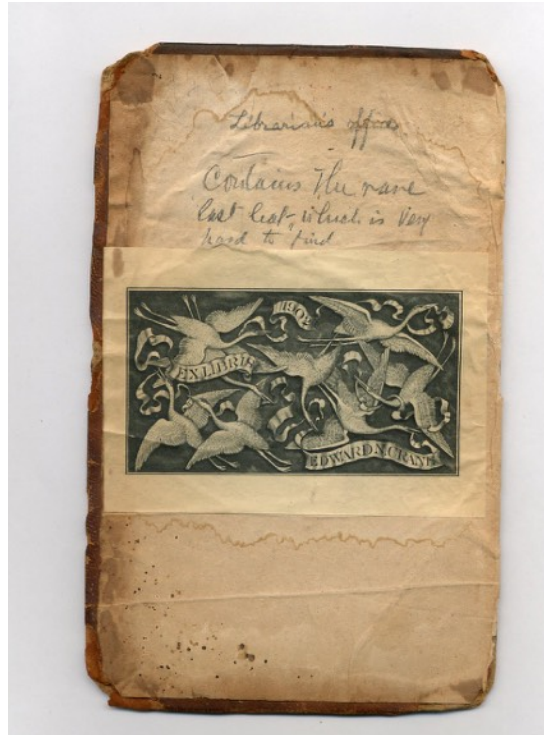 Librarian's office
Contains the rare
last leaf which is very
hard to find
1902
EX LIBRIS
EDWARD N. CRANE